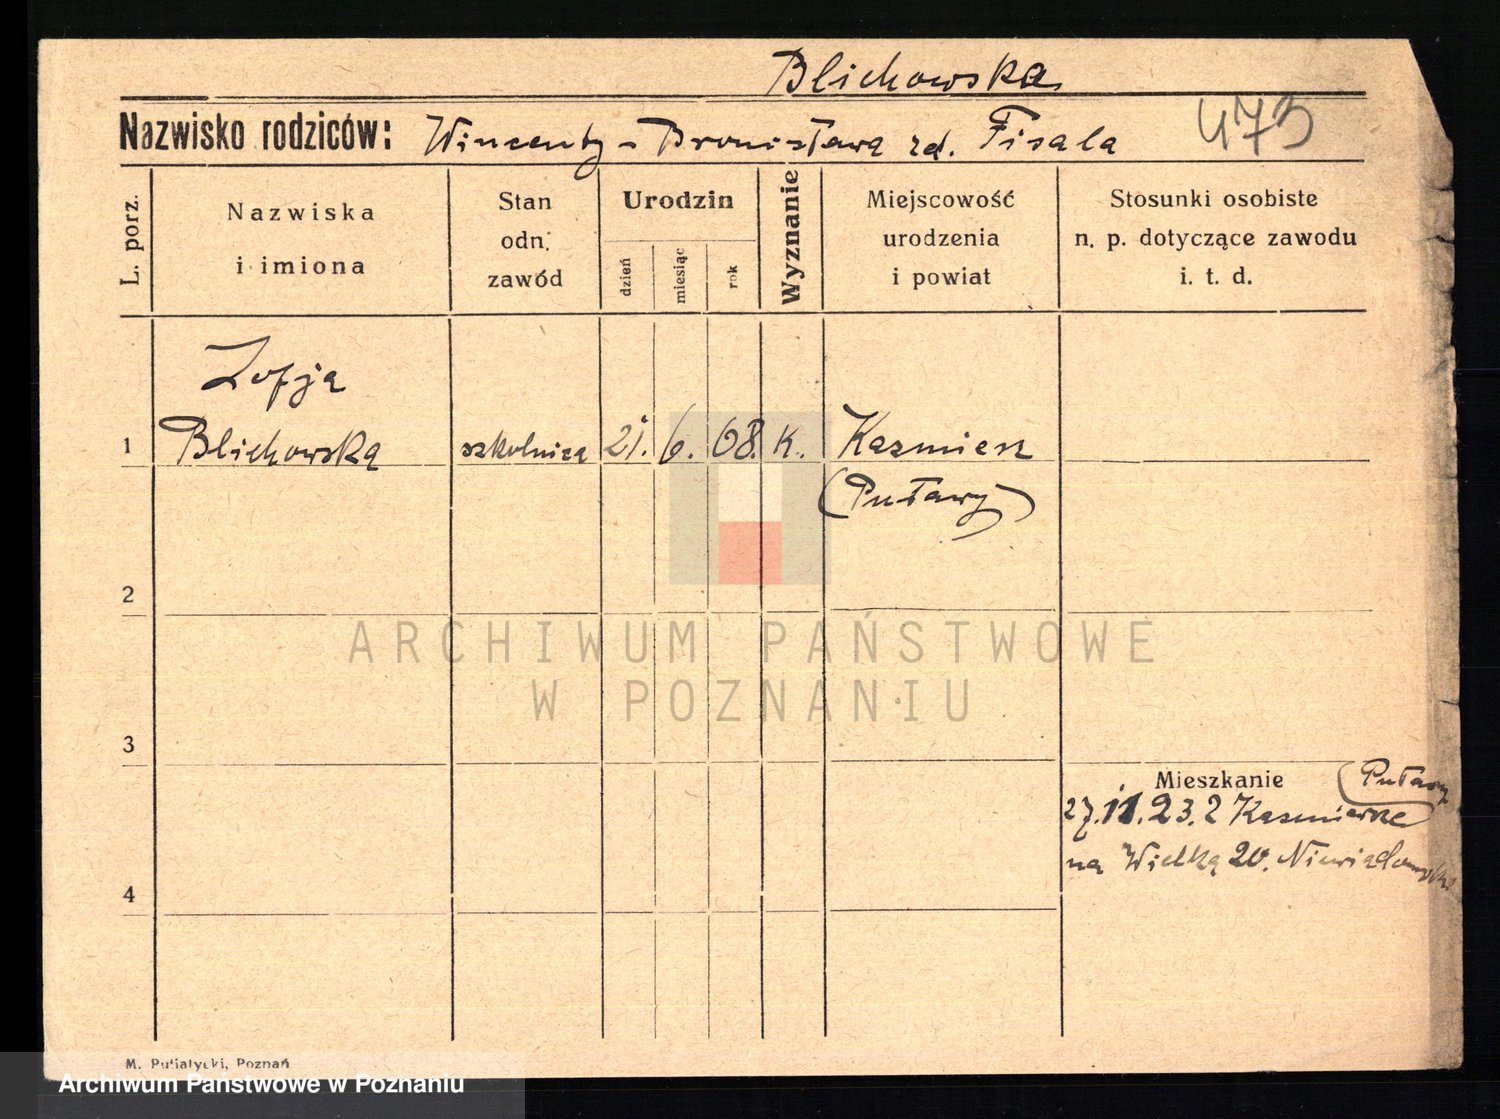 Blichowska
Nazwisko rodziców: Wincenty - Bronisława rd. Fisala
473
L. porz.
Nazwiska
i imiona
Stan
odn.
zawód
Urodzin
dzień
miesiąc
rok
Wyznanie
Miejscowość
urodzenia
i powiat
Stosunki osobiste
n. p. dotyczące zawodu
i. t. d.
Zofja
1 Blichowska szkolnica 21. 6. 08. K. Kazmierz
(Puławy)
2
3
Mieszkanie (Puławy
27.11.23. z Kazmierza
na Wielką 20. Niewiadomski
4
M. Putiatycki, Poznań
ARCHIWUM PAŃSTWOWE
W POZNANIU
Archiwum Państwowe w Poznaniu